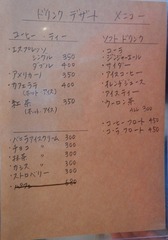 ドリンク デザート メニュー
コーヒー ・ ティー
エスプレッソ
シングル 350
ダブル 400
・アメリカーノ 350
・カフェラテ 400
(ホット アイス)
・紅茶 350
(ホット、アイス)
ソフト ドリンク
・コーラ
・ジンジャエール
・サイダー
・アイスコーヒー
・オレンジジュース
・アイスティー
・ウーロン茶
・コーヒーフロート 450
・コーラ フロート 450
・バニラアイスクリーム 300
・チョコ 〃 300
・抹茶 〃 300
・ストロベリー 〃 300